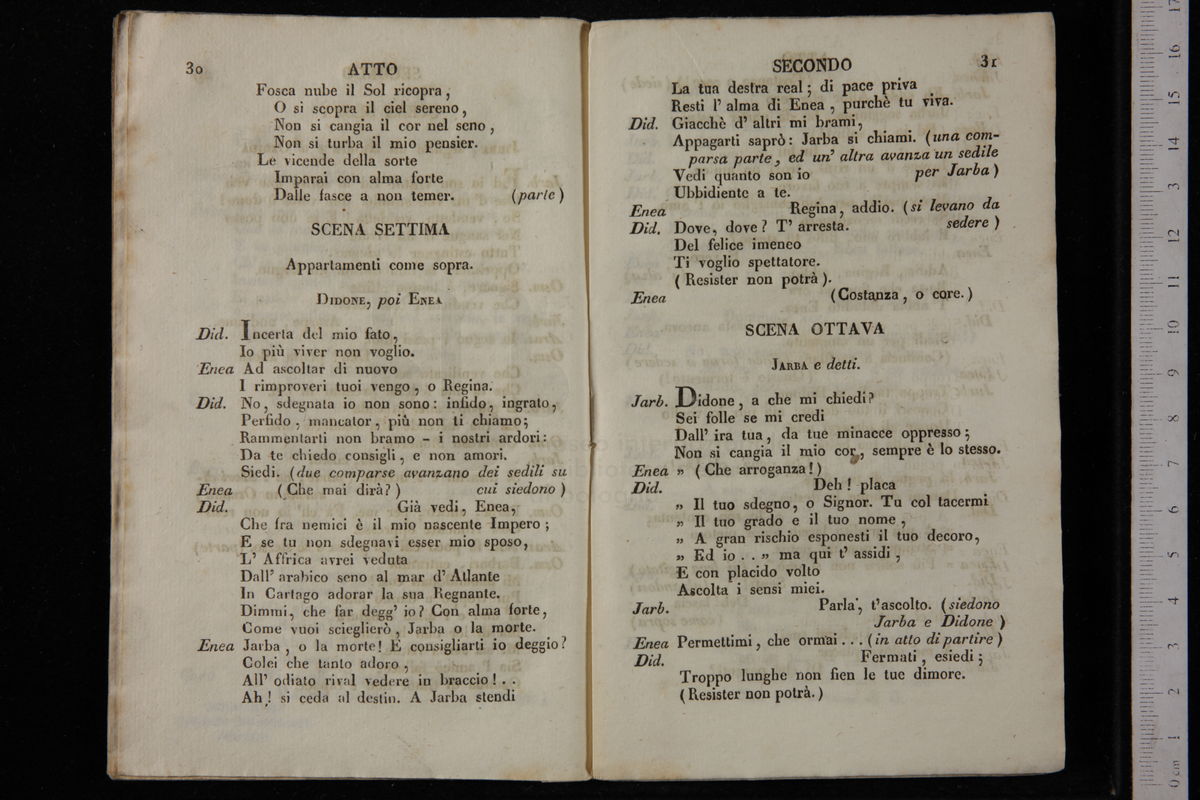 30 ATTO
Fosca nube il Sol ricopra,
O si scopra il ciel sereno,
Non si cangia il cor nel seno,
Non si turba il mio pensier.
Le vicende della sorte
Imparai con alma forte
Dalle fasce a non temer. (parte)
SCENA SETTIMA
Appartamenti come sopra.
DIDONE, poi ENEA
Did. Incerta del mio fato,
Io più viver non voglio.
Enea Ad ascoltar di nuovo
I rimproveri tuoi vengo, o Regina.
Did. No, sdegnata io non sono: infido, ingrato,
Perfido, mancator, più non ti chiamo;
Rammentarti non bramo - i nostri ardori:
Da te chiedo consigli, e non amori.
Siedi. (due comparse avanzano dei sedili su
Enea (Che mai dirà?) cui siedono)
Did. Già vedi, Enea,
Che fra nemici è il mio nascente Impero;
E se tu non sdegnavi esser mio sposo,
L' Affrica avrei veduta
Dall' arabico seno al mar d' Atlante
In Cartago adorar la sua Regnante.
Dimmi, che far degg' io? Con alma forte,
Come vuoi scieglierò, Jarba o la morte.
Enea Jarba, o la morte! E consigliarti io deggio?
Colei che tanto adoro,
All' odiato rival vedere in braccio! . .
Ah! si ceda al destin. A Jarba stendi
SECONDO 31
La tua destra real; di pace priva
Resti l' alma di Enea, purchè tu viva.
Did. Giacchè d' altri mi brami,
Appagarti saprò: Jarba si chiami. (una com-
parsa parte, ed un' altra avanza un sedile
Vedi quanto son io per Jarba)
Ubbidiente a te.
Enea Regina, addio. (si levano da
Did. Dove, dove? T' arresta. sedere)
Del felice imeneo
Ti voglio spettatore.
(Resister non potrà).
Enea (Costanza, o core.)
SCENA OTTAVA
JARBA e detti.
Jarb. Didone, a che mi chiedi?
Sei folle se mi credi
Dall' ira tua, da tue minacce oppresso;
Non si cangia il mio cor, sempre è lo stesso.
Enea » (Che arroganza!)
Did. Deh! placa
» Il tuo sdegno, o Signor. Tu col tacermi
» Il tuo grado e il tuo nome,
» A gran rischio esponesti il tuo decoro,
» Ed io . . » ma qui t' assidi,
E con placido volto
Ascolta i sensi miei.
Jarb. Parla, t'ascolto. (siedono
Jarba e Didone)
Enea Permettimi, che ormai . . . (in atto di partire)
Did. Fermati, esiedi;
Troppo lunghe non fien le tue dimore.
(Resister non potrà.)
0 cm 1 2 3 4 5 6 7 8 9 10 11 12 13 14 15 16 17